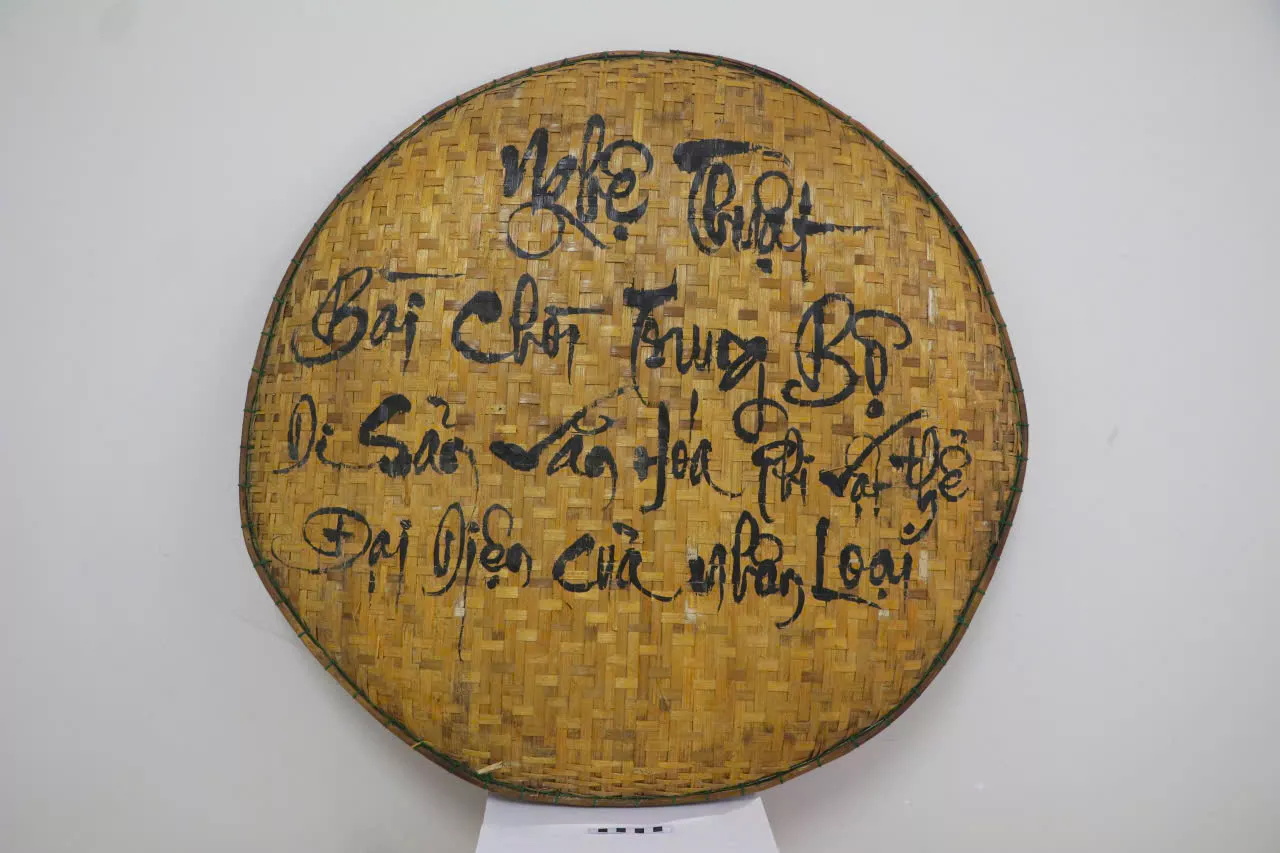 Nghệ Thuật
Bài Chòi Trung Bộ
Di Sản Văn Hóa Phi Vật thể
Đại Diện Của nhân Loại